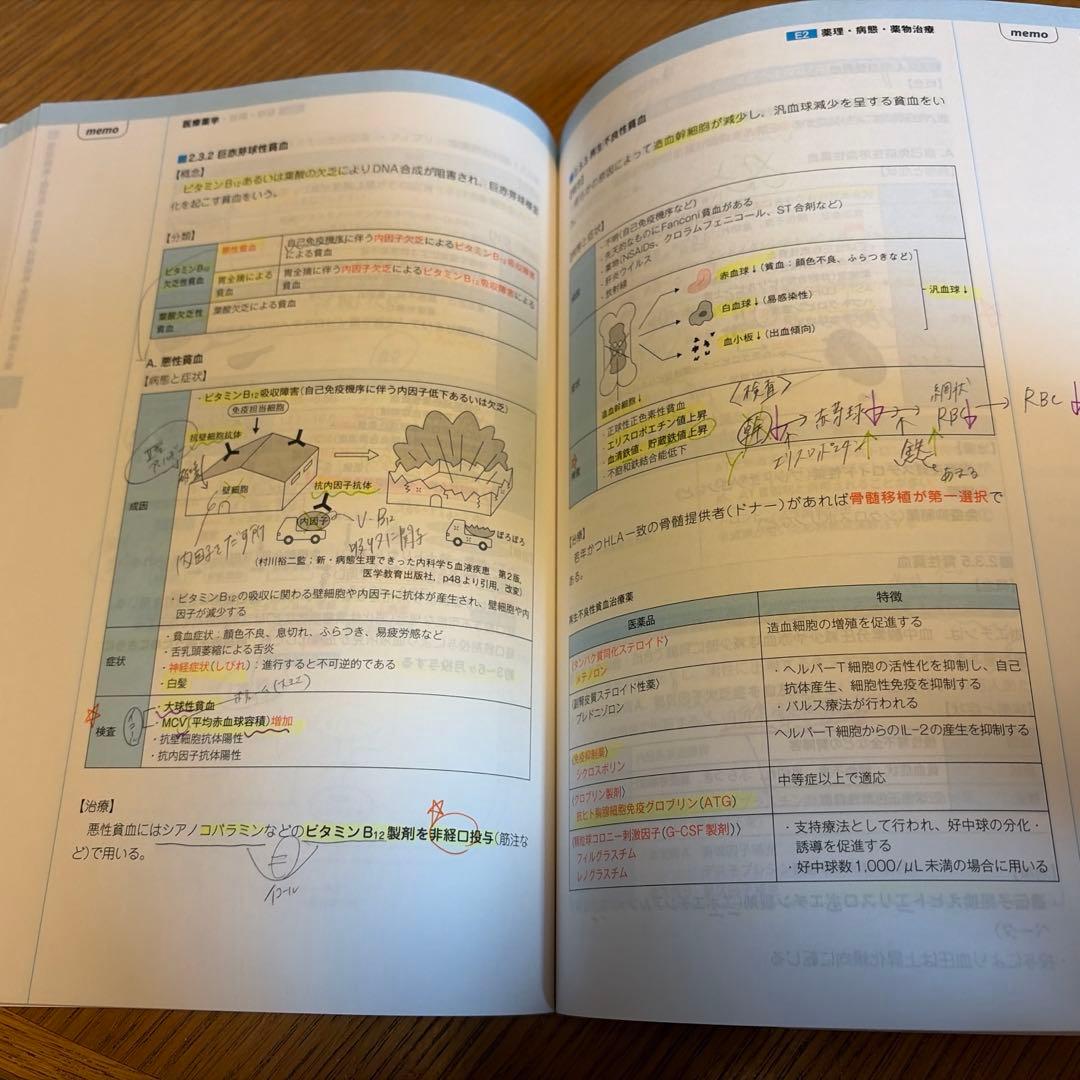 memo
医療薬学
■2.3.2 巨赤芽球性貧血
【概念】
ビタミンB12あるいは葉酸の欠乏によりDNA合成が阻害され、巨赤芽球
化を起こす貧血をいう。
【分類】
ビタミンB12欠乏性貧血
悪性貧血
自己免疫機序に伴う内因子欠乏によるビタミンB12吸収障害
による貧血
胃全摘による貧血
胃全摘に伴う内因子欠乏によるビタミンB12吸収障害による
貧血
葉酸欠乏性貧血
葉酸欠乏による貧血
A. 悪性貧血
【病態と症状】
成因
・ビタミンB12吸収障害(自己免疫機序に伴う内因子低下あるいは欠乏)
免疫担当細胞
抗壁細胞抗体
壁細胞
抗内因子抗体
内因子
V-B12
内因子をだす所
ぼろぼろ
(村川裕二監:新・病態生理できった内科学5血液疾患 第2版,
医学教育出版社,p48より引用,改変)
・ビタミンB12の吸収に関わる壁細胞や内因子に抗体が産生され、壁細胞や内
因子が減少する
症状
・貧血症状:顔色不良、息切れ、ふらつき、易疲労感など
・舌乳頭萎縮による舌炎
・神経症状(しびれ):進行すると不可逆的である
・白髪
検査
・大球性貧血
・MCV(平均赤血球容積)増加
・抗壁細胞抗体陽性
・抗内因子抗体陽性
【治療】
悪性貧血にはシアノコバラミンなどのビタミンB12製剤を非経口投与(筋注な
ど)で用いる。
イコール
E2 薬理・病態・薬物治療
memo
2.3.3 再生不良性貧血
原因によって造血幹細胞が減少し、汎血球減少を呈する貧血をい
・不明(自己免疫機序など)
・先天的なものにFanconi貧血がある
・薬物(NSAIDs、クロラムフェニコール、ST合剤など)
・肝炎ウイルス
・放射線
赤血球↓(貧血:顔色不良、ふらつきなど)
白血球↓(易感染性)
血小板↓(出血傾向)
汎血球↓
造血幹細胞↓
・正球性正色素性貧血
・エリスロポエチン値上昇
・血清鉄値、貯蔵鉄値上昇
・不飽和鉄結合能低下
〈検査〉
幹↓ → 赤芽球↓ → 網状RBC↓ → RBC↓
エリスロポエチン↑
鉄↑
あまる
【治療】
若年かつHLA一致の骨髄提供者(ドナー)があれば骨髄移植が第一選択で
ある。
再生不良性貧血治療薬
医薬品
特徴
〈タンパク質同化ステロイド〉
メテノロン
造血細胞の増殖を促進する
〈副腎皮質ステロイド性薬〉
プレドニゾロン
・ヘルパーT細胞の活性化を抑制し、自己
抗体産生、細胞性免疫を抑制する
・パルス療法が行われる
〈免疫抑制薬〉
シクロスポリン
ヘルパーT細胞からのIL-2の産生を抑制する
〈グロブリン製剤〉
抗ヒト胸腺細胞免疫グロブリン(ATG)
中等症以上で適応
〈顆粒球コロニー刺激因子(G-CSF製剤)〉
フィルグラスチム
レノグラスチム
・支持療法として行われ、好中球の分化・
誘導を促進する
・好中球数1,000/μL未満の場合に用いる